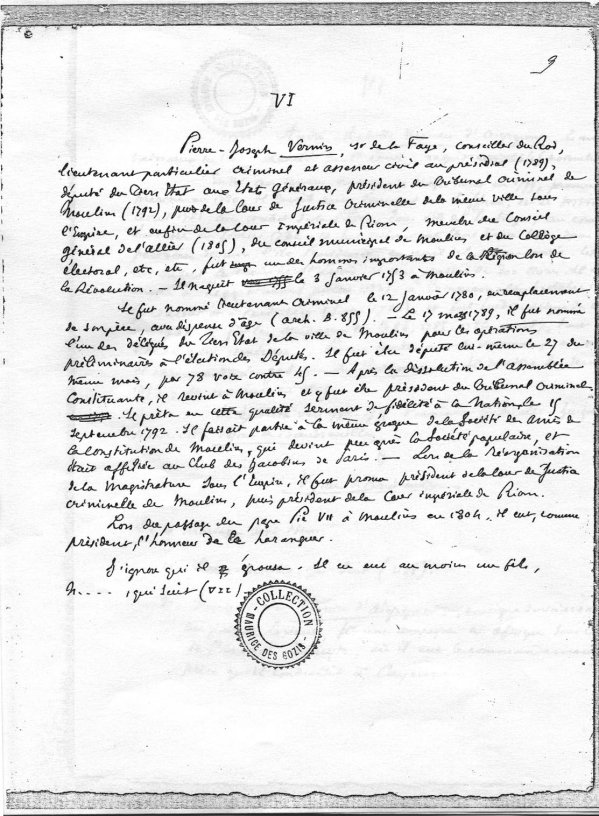 9
VI
Pierre-Joseph Vernin, sr de la Faye, conseiller du Roi,
lieutenant particulier criminel et assesseur civil au présidial (1789),
député du Tiers Etat aux Etats généraux, président du Tribunal criminel de
Moulins (1792), puis de la Cour de Justice Criminelle de la même ville sous
l'Empire, et enfin de la Cour Impériale de Riom, membre du Conseil
général de l'allier (1805), du conseil municipal de Moulins et du Collège
électoral, etc, etc, fut un des hommes importants de la Région lors de
la Révolution. - Il naquit le 3 Janvier 1753 à Moulins.
Il fut nommé lieutenant Criminel le 12 Janvier 1780, en remplacement
de son père, avec dispense d'âge (arch. B. 855). - Le 17 mars 1789, il fut nommé
l'un des délégués du Tiers Etat de la ville de Moulins pour les opérations
préliminaires à l'élection des Députés. Il fut élu député lui-même le 27 du
même mois, par 78 voix contre 45. - Après la dissolution de l'assemblée
Constituante, il revint à Moulins et y fut élu président du Tribunal Criminel.
Il prêta en cette qualité serment de fidélité à la Nation, le 15
septembre 1792. Il faisait partie à la même époque de la Société des amis de
la Constitution de Moulins, qui devint peu après la Société populaire, et
était affiliée au Club des Jacobins de Paris. - Lors de la réorganisation
de la Magistrature sous l'Empire, il fut promu président de la Cour de Justice
criminelle de Moulins, puis président de la Cour impériale de Riom.
Lors du passage du pape Pie VII à Moulins en 1804, il eut, comme
président, l'honneur de le haranguer.
J'ignore qui il épousa. Il en eut au moins un fils,
N....., qui suit (VII)
COLLECTION
MAURICE DES GOZIS